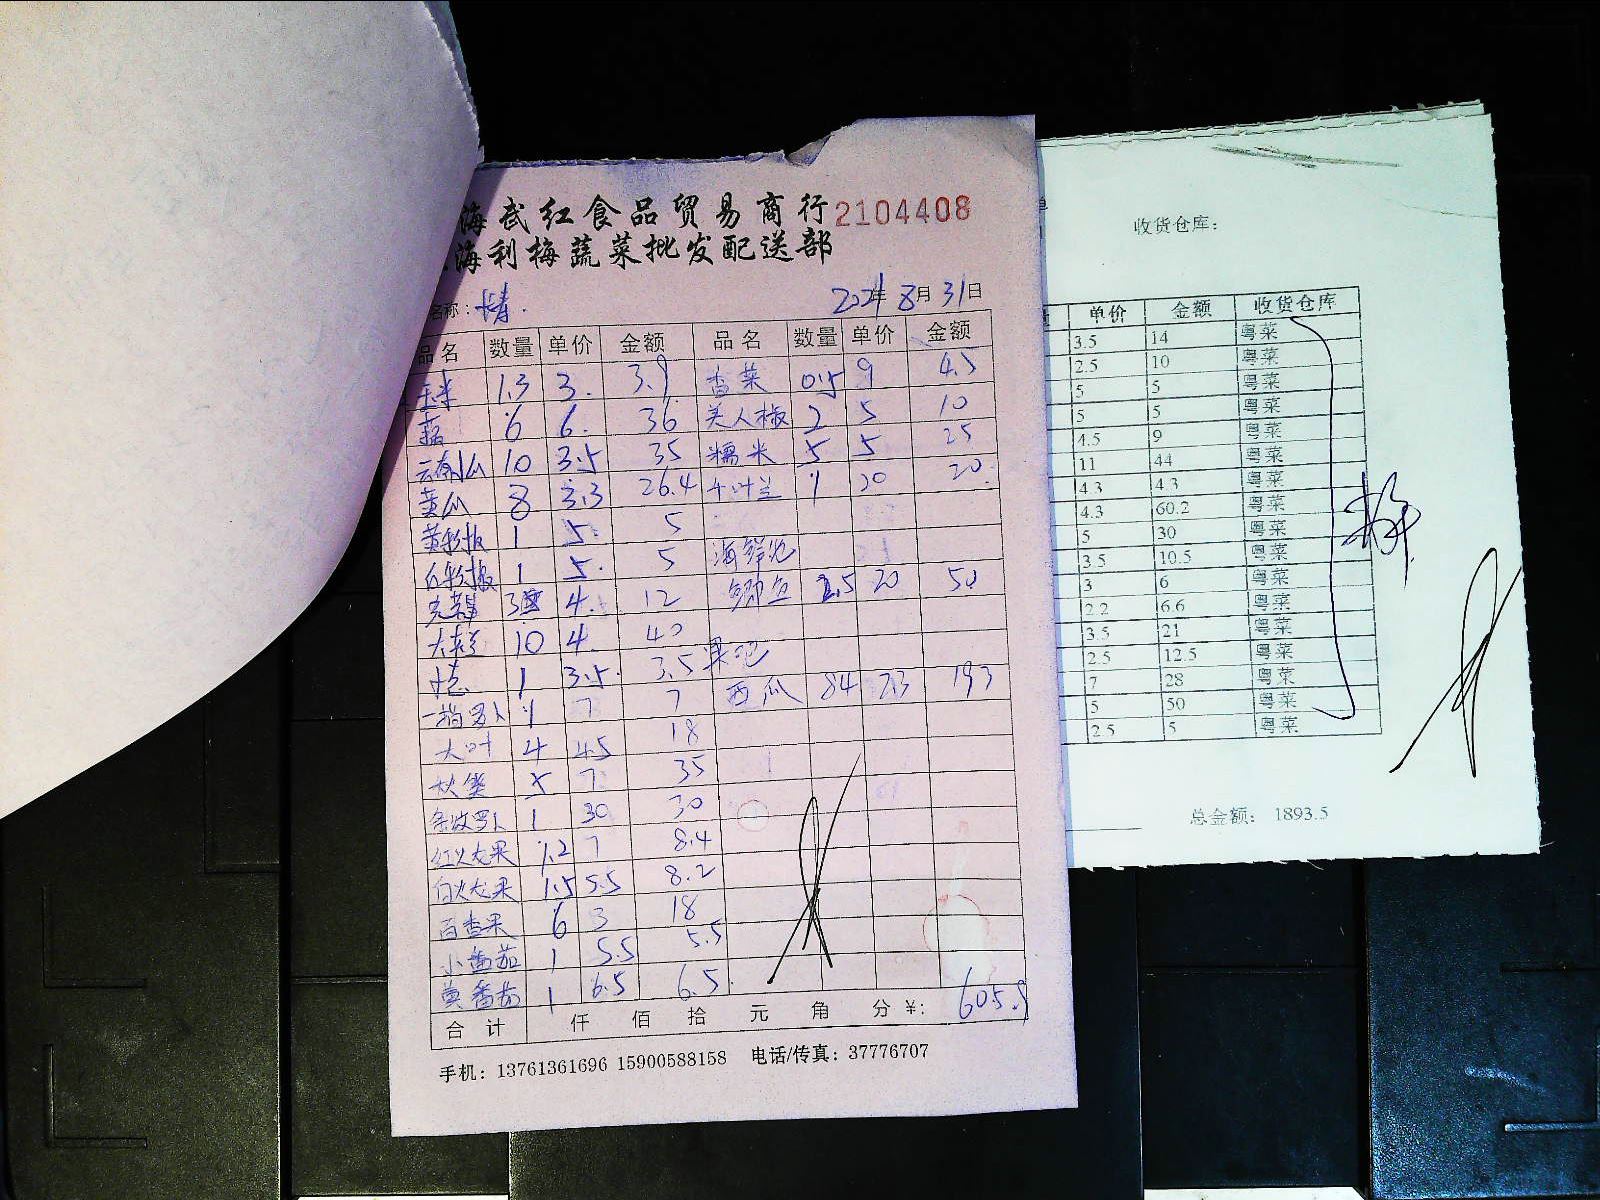 海武红食品贸易商行 2104408
海利梅蔬菜批发配送部
名称: 2021年 8月 31日
品名 数量 单价 金额 品名 数量 单价 金额
玉米 1.3 3. 3.9 香菜 0.5 9 4.5
藕 6 6. 36 美人椒 2 5 10
云南小瓜 10 3.5 35 糯米 5 5 25
黄瓜 8 3.3 26.4 千叶兰 1 20 20.
黄彩椒 1 5. 5
红彩椒 1 5. 5 海鲜池
4. 12 鲫鱼 2.5 20 50
10 4. 40
1 3.5. 3.5 果吧
1 7 7 西瓜 84 2.3 193
大叶 4 4.5 18
秋葵 5 7 35
1 30 30
红火龙果 1.2 7 8.4
白火龙果 1.5 5.5 8.2
百香果 6 3 18
小番茄 1 5.5 5.5
黄番茄 1 6.5 6.5
合计 仟 佰 拾 元 角 分 ¥: 605.9
手机: 13761361696 15900588158 电话/传真: 37776707
收货仓库:
单价 金额 收货仓库
3.5 14 粤菜
2.5 10 粤菜
5 5 粤菜
5 5 粤菜
4.5 9 粤菜
11 44 粤菜
4.3 4.3 粤菜
4.3 60.2 粤菜
5 30 粤菜
3.5 10.5 粤菜
3 6 粤菜
2.2 6.6 粤菜
3.5 21 粤菜
2.5 12.5 粤菜
7 28 粤菜
5 50 粤菜
2.5 5 粤菜
总金额: 1893.5